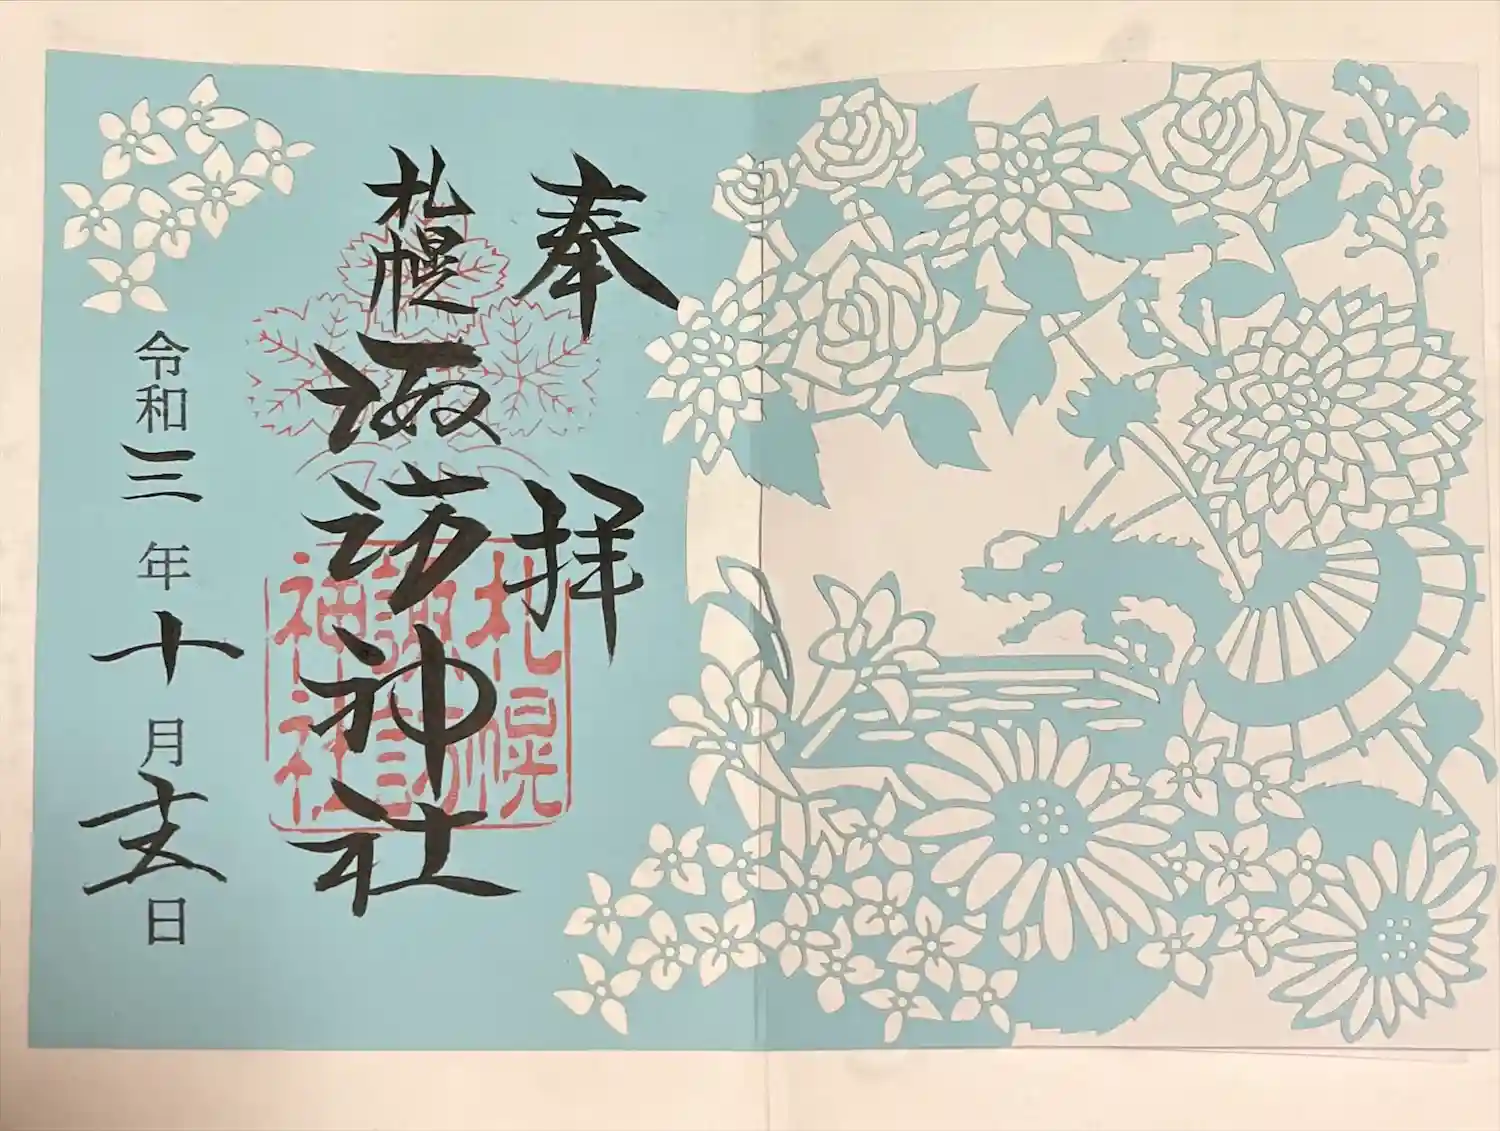 奉拝
札幌諏訪神社
札幌
諏訪
神社
令和三年十月十五日